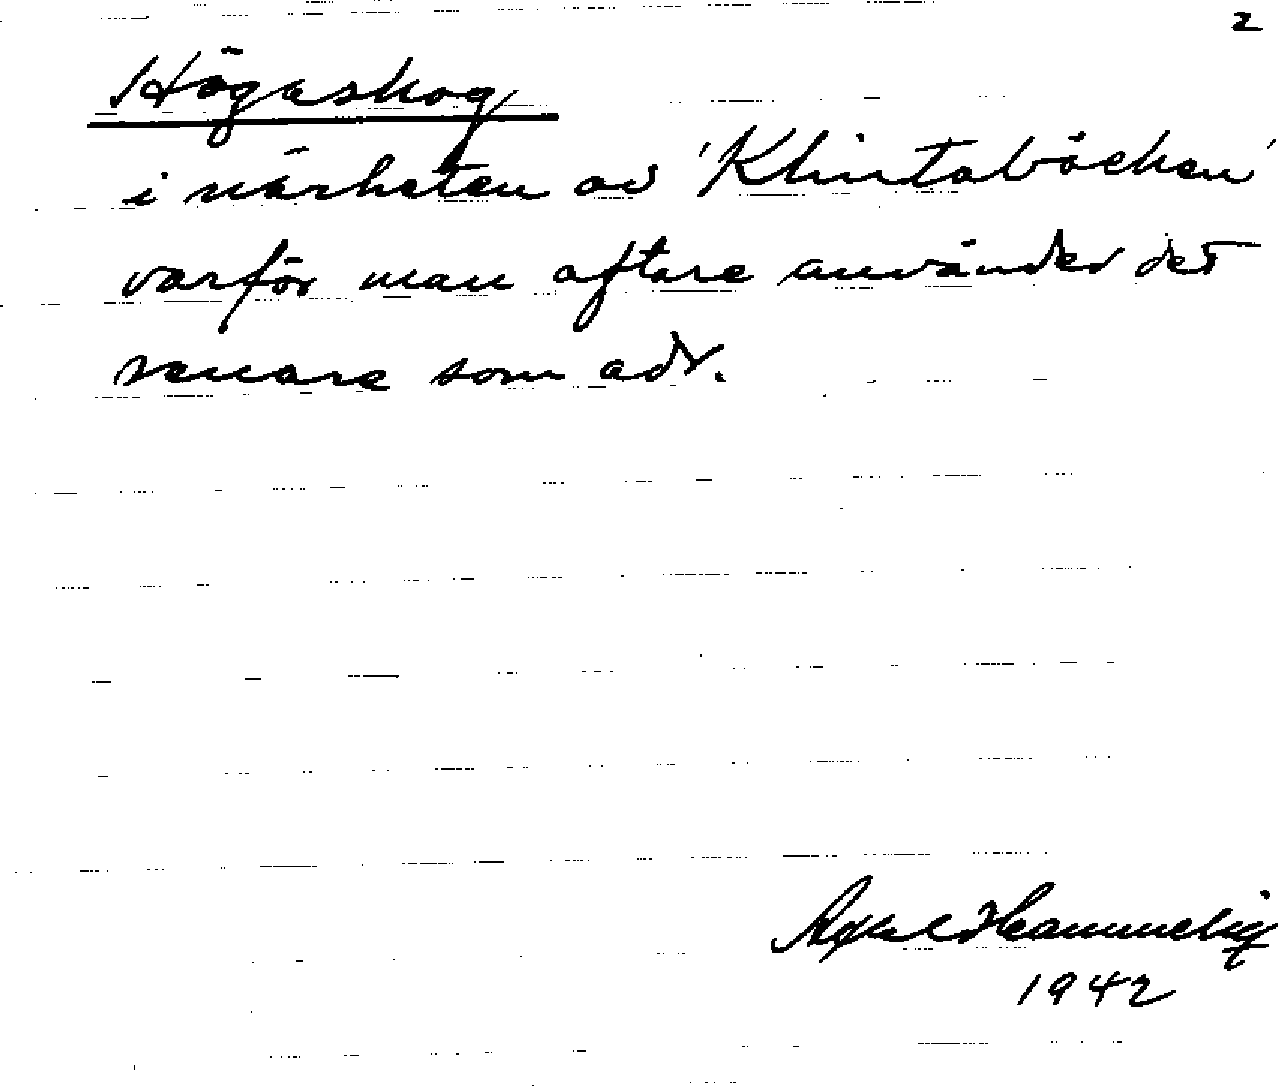 2
Högaskog
i närheten av 'Klintabäcken'
varför man oftare använder det
senare som adr.
Axel Hammelig
1942